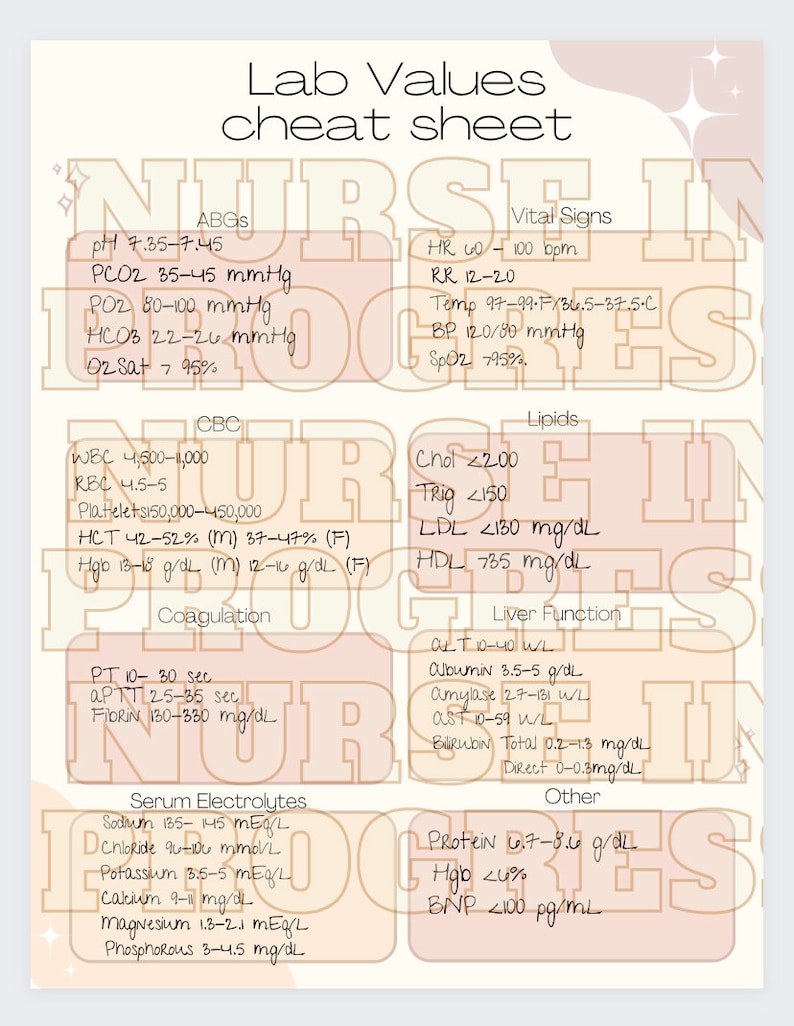 Lab Values
cheat sheet
NURSE IN
PROGRESS
NURSE IN
PROGRESS
NURSE IN
PROGRESS
ABGs
pH 7.35-7.45
PCO2 35-45 mmHg
PO2 80-100 mmHg
HCO3 22-26 mmHg
O2Sat > 95%
Vital Signs
HR 60 - 100 bpm
RR 12-20
Temp 97-99•F/36.5-37.5•C
BP 120/80 mmHg
SpO2 >95%.
CBC
WBC 4,500-11,000
RBC 4.5-5
Platelets150,000-450,000
HCT 42-52% (M) 37-47% (F)
Hgb 13-18 g/dL (M) 12-16 g/dL (F)
Lipids
Chol <200
Trig <150
LDL <130 mg/dL
HDL >35 mg/dL
Coagulation
PT 10- 30 sec
aPTT 25-35 sec
Fibrin 130-330 mg/dL
Liver Function
ALT 10-40 u/L
Albumin 3.5-5 g/dL
Amylase 27-131 u/L
AST 10-59 u/L
Bilirubin Total 0.2-1.3 mg/dL
Direct 0-0.3mg/dL
Serum Electrolytes
Sodium 135- 145 mEq/L
Chloride 96-106 mmol/L
Potassium 3.5-5 mEq/L
Calcium 9-11 mg/dL
Magnesium 1.3-2.1 mEq/L
Phosphorous 3-4.5 mg/dL
Other
Protein 6.7-8.6 g/dL
Hgb <6%
BNP <100 pg/mL